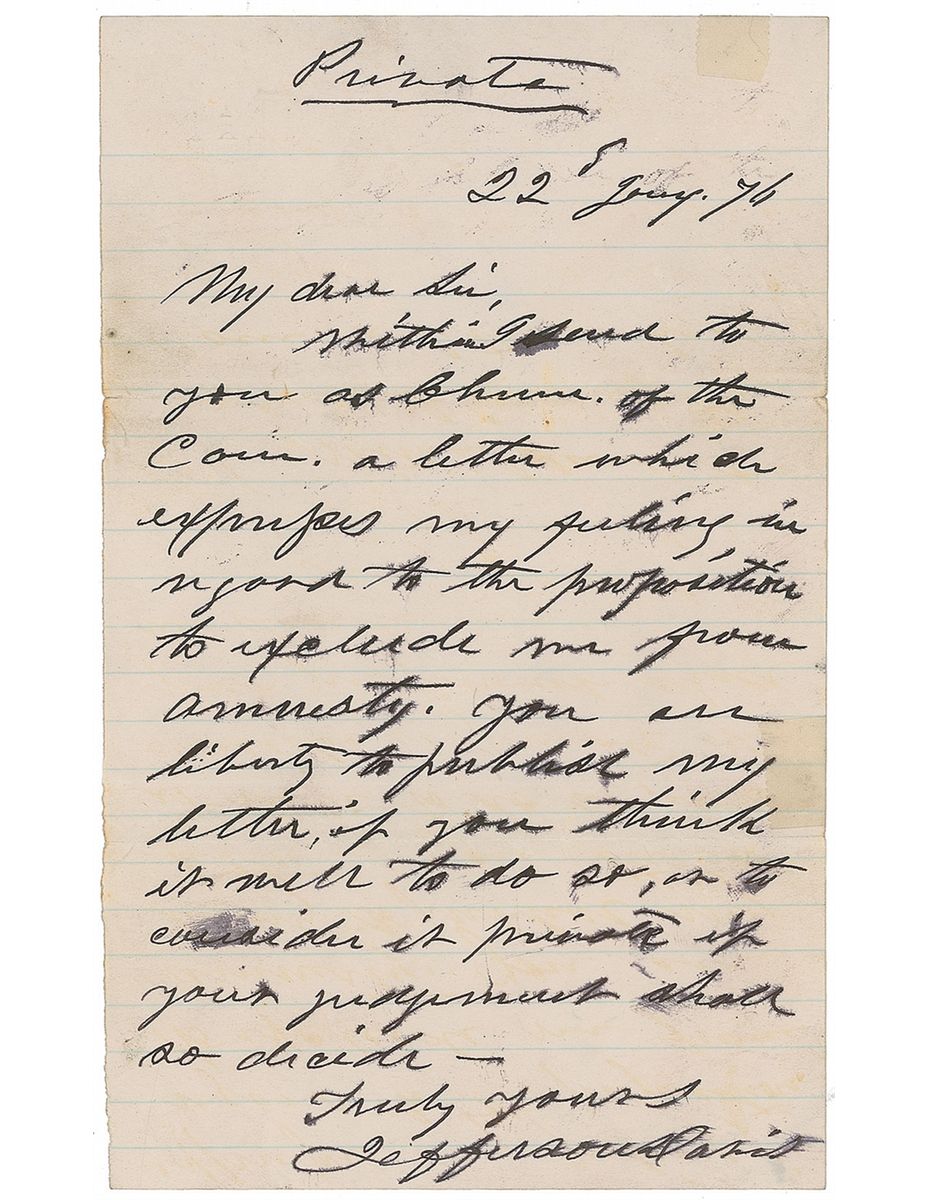 Private
22d Jany. 76
My dear Sir,
Within I send to
you as Chmn. of the
Com. a letter which
expresses my feeling in
regard to the proposition
to exclude me from
amnesty. You are
liberty to publish my
letter, if you think
it well to do so, or to
consider it private if
your judgement shall
so decide —
Truly yours
Jefferson Davis